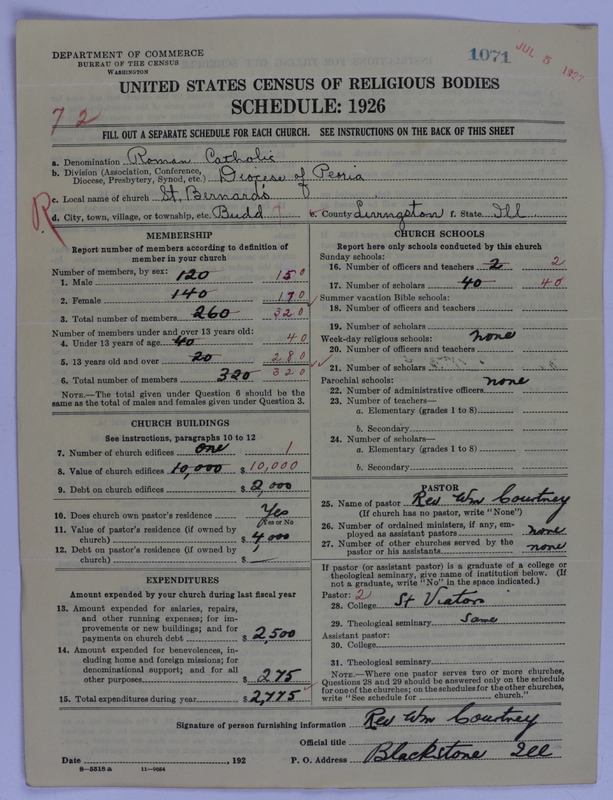 DEPARTMENT OF COMMERCE
BUREAU OF THE CENSUS
WASHINGTON
1071 JUL 5 1927
UNITED STATES CENSUS OF RELIGIOUS BODIES
SCHEDULE: 1926
72
FILL OUT A SEPARATE SCHEDULE FOR EACH CHURCH. SEE INSTRUCTIONS ON THE BACK OF THIS SHEET
a. Denomination Roman Catholic
b. Division (Association, Conference, Diocese, Presbytery, Synod, etc.) Diocese of Peoria
R
c. Local name of church St. Bernard's
d. City, town, village, or township, etc. Budd e. County Livingston f. State Ill
MEMBERSHIP
Report number of members according to definition of
member in your church
Number of members, by sex:
1. Male 120 150
2. Female 140 170
3. Total number of members 260 320
Number of members under and over 13 years old:
4. Under 13 years of age 40 40
5. 13 years old and over 20 280
6. Total number of members 320 320
NOTE.—The total given under Question 6 should be
same as the total of males and females given under Question 3.
CHURCH BUILDINGS
See instructions, paragraphs 10 to 12
7. Number of church edifices one 1
8. Value of church edifices 10,000 $10,000
9. Debt on church edifices $2,000
10. Does church own pastor's residence Yes
(Yes or No)
11. Value of pastor's residence (if owned by
church) $4,000
12. Debt on pastor's residence (if owned by
church) $
EXPENDITURES
Amount expended by your church during last fiscal year
13. Amount expended for salaries, repairs,
and other running expenses; for im-
provements or new buildings; and for
payments on church debt $2,500
14. Amount expended for benevolences, in-
cluding home and foreign missions; for
denominational support; and for all
other purposes $275
15. Total expenditures during year $2,775
CHURCH SCHOOLS
Report here only schools conducted by this church
Sunday schools:
16. Number of officers and teachers 2 2
17. Number of scholars 40 40
Summer vacation Bible schools:
18. Number of officers and teachers
19. Number of scholars
Week-day religious schools: none
20. Number of officers and teachers
21. Number of scholars
Parochial schools: none
22. Number of administrative officers
23. Number of teachers—
a. Elementary (grades 1 to 8)
b. Secondary
24. Number of scholars—
a. Elementary (grades 1 to 8)
b. Secondary
PASTOR
25. Name of pastor Rev Wm Courtney
(If church has no pastor, write "None")
26. Number of ordained ministers, if any, em-
ployed as assistant pastors none
27. Number of other churches served by the
pastor or his assistants none
If pastor (or assistant pastor) is a graduate of a college or
theological seminary, give name of institution below. (If
not a graduate, write "No" in the space indicated.)
Pastor: 2
28. College St Viator
29. Theological seminary Same
Assistant pastor:
30. College
31. Theological seminary
NOTE.—Where one pastor serves two or more churches,
Questions 28 and 29 should be answered only on the schedule
for one of the churches; on the schedules for the other churches,
write "See schedule for church."
Signature of person furnishing information Rev Wm Courtney
Official title
Date , 192 P. O. Address Blackstone Ill
8-5518 a 11-9084